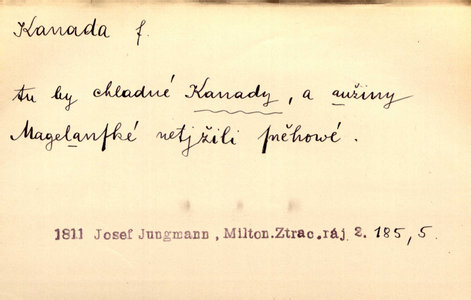 Kanada f.
tu by chladné Kanady, a aužiny
Magelanſké netjžili ſněhowé.
1811 Josef Jungmann, Milton.Ztrac.ráj 2. 185, 5.